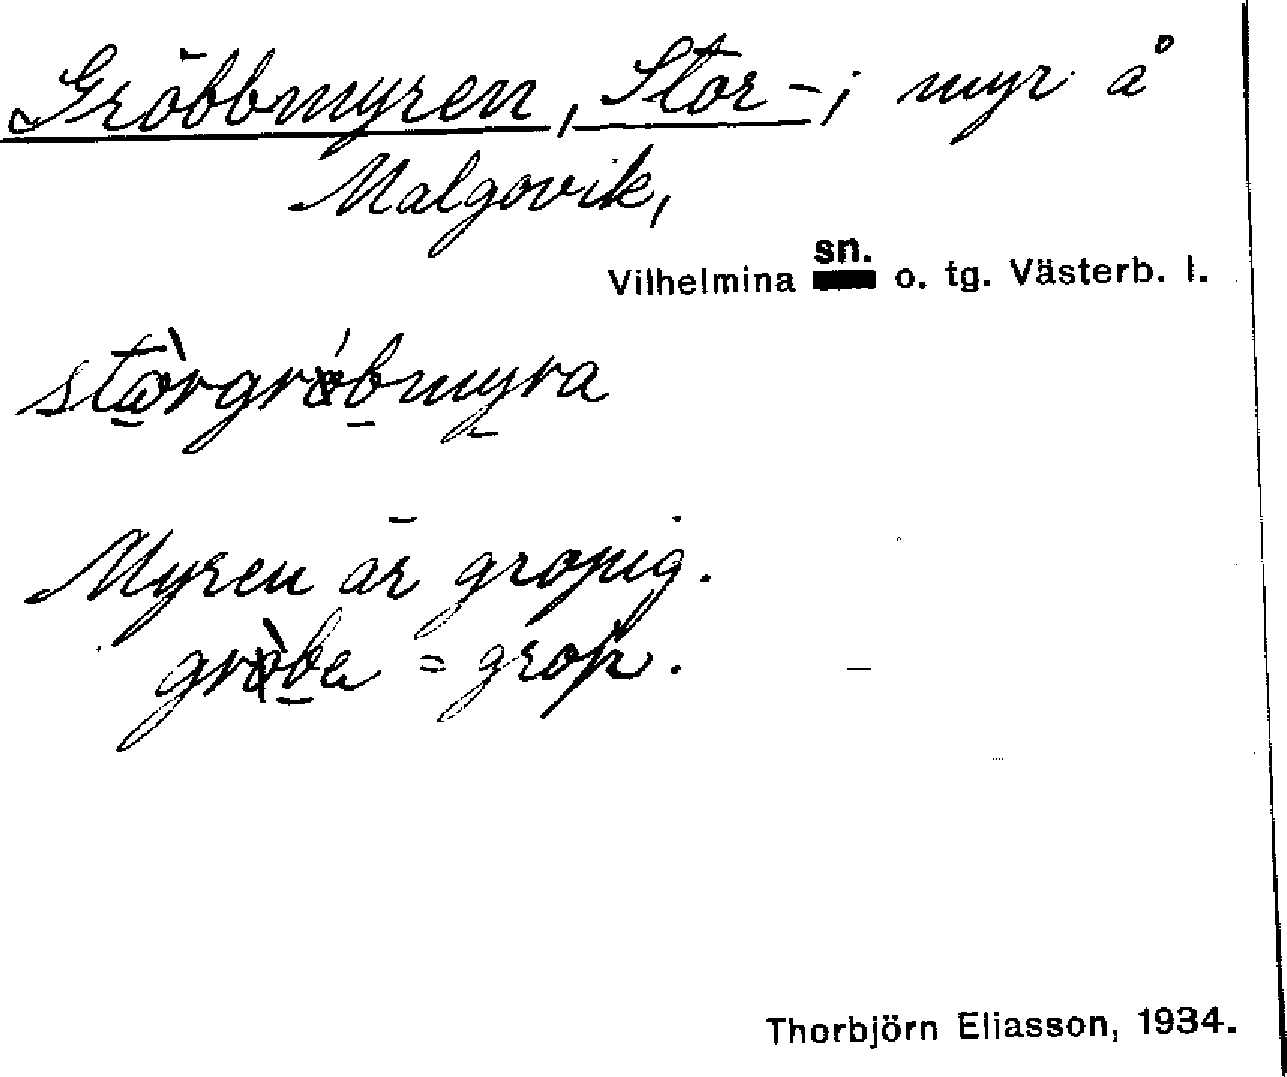 Gröbbmyren, Stor-; myr å
Malgovik,
Vilhelmina sn. o. tg. Västerb. l.
stòrgröbmyra
Myren är gropig.
gröba = grop.
Thorbjörn Eliasson, 1934.